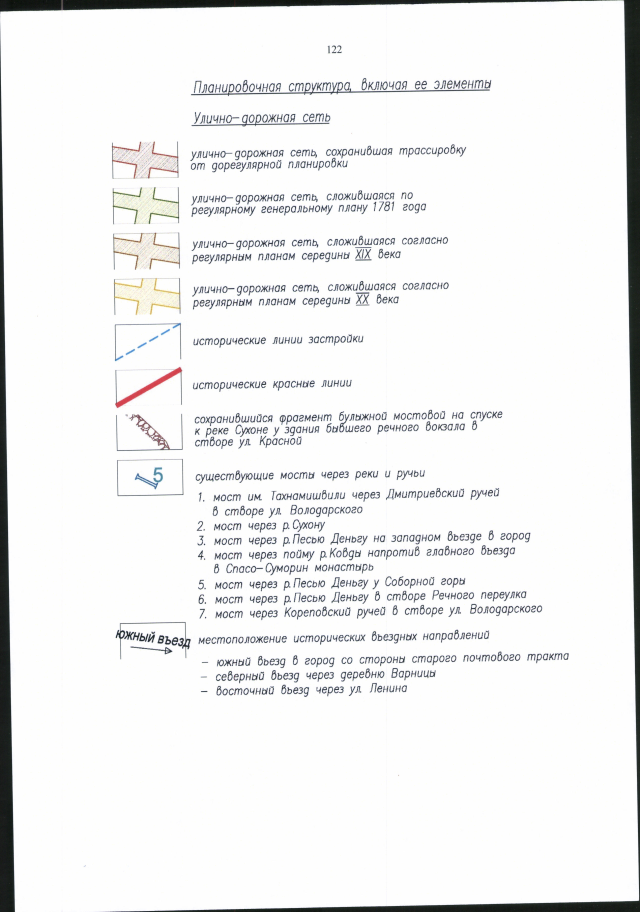 122
Планировочная структура, включая ее элементы
Улично-дорожная сеть
улично-дорожная сеть, сохранившая трассировку
от дорегулярной планировки
улично-дорожная сеть, сложившаяся по
регулярному генеральному плану 1781 года
улично-дорожная сеть, сложившаяся согласно
регулярным планам середины XIX века
улично-дорожная сеть, сложившаяся согласно
регулярным планам середины XX века
исторические линии застройки
исторические красные линии
сохранившийся фрагмент булыжной мостовой на спуске
к реке Сухоне у здания бывшего речного вокзала в
створе ул. Красной
5
существующие мосты через реки и ручьи
1. мост им. Тахнамишвили через Дмитриевский ручей
в створе ул. Володарского
2. мост через р.Сухону
3. мост через р.Песью Деньгу на западном въезде в город
4. мост через пойму р.Ковды напротив главного въезда
в Спасо-Суморин монастырь
5. мост через р.Песью Деньгу у Соборной горы
6. мост через р.Песью Деньгу в створе Речного переулка
7. мост через Кореповский ручей в створе ул. Володарского
ЮЖНЫЙ ВЪЕЗД
местоположение исторических въездных направлений
- южный въезд в город со стороны старого почтового тракта
- северный въезд через деревню Варницы
- восточный въезд через ул. Ленина